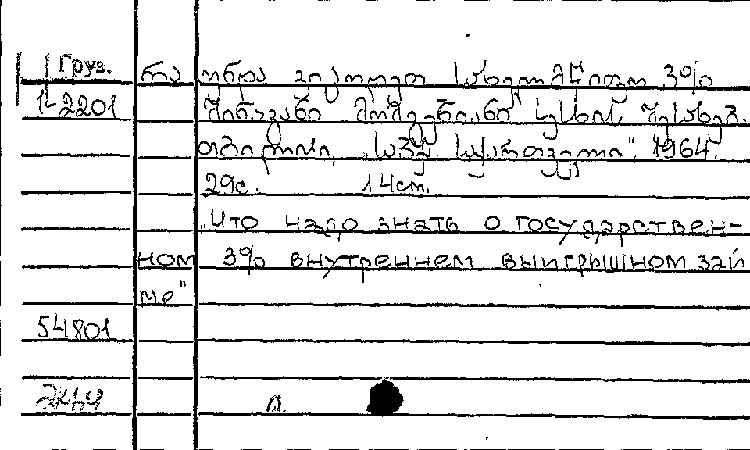 Груз. რა უნდა ვიცოდეთ სახელმწიფო 3%
1-2201 შინაგანი მომგებიანი სესხის შესახებ.
თბილისი, „საბჭ. საქართველო", 1964.
29с. 14см.
„Что надо знать о государствен-
ном 3% внутреннем выигрышном зай
ме"
54801
п.